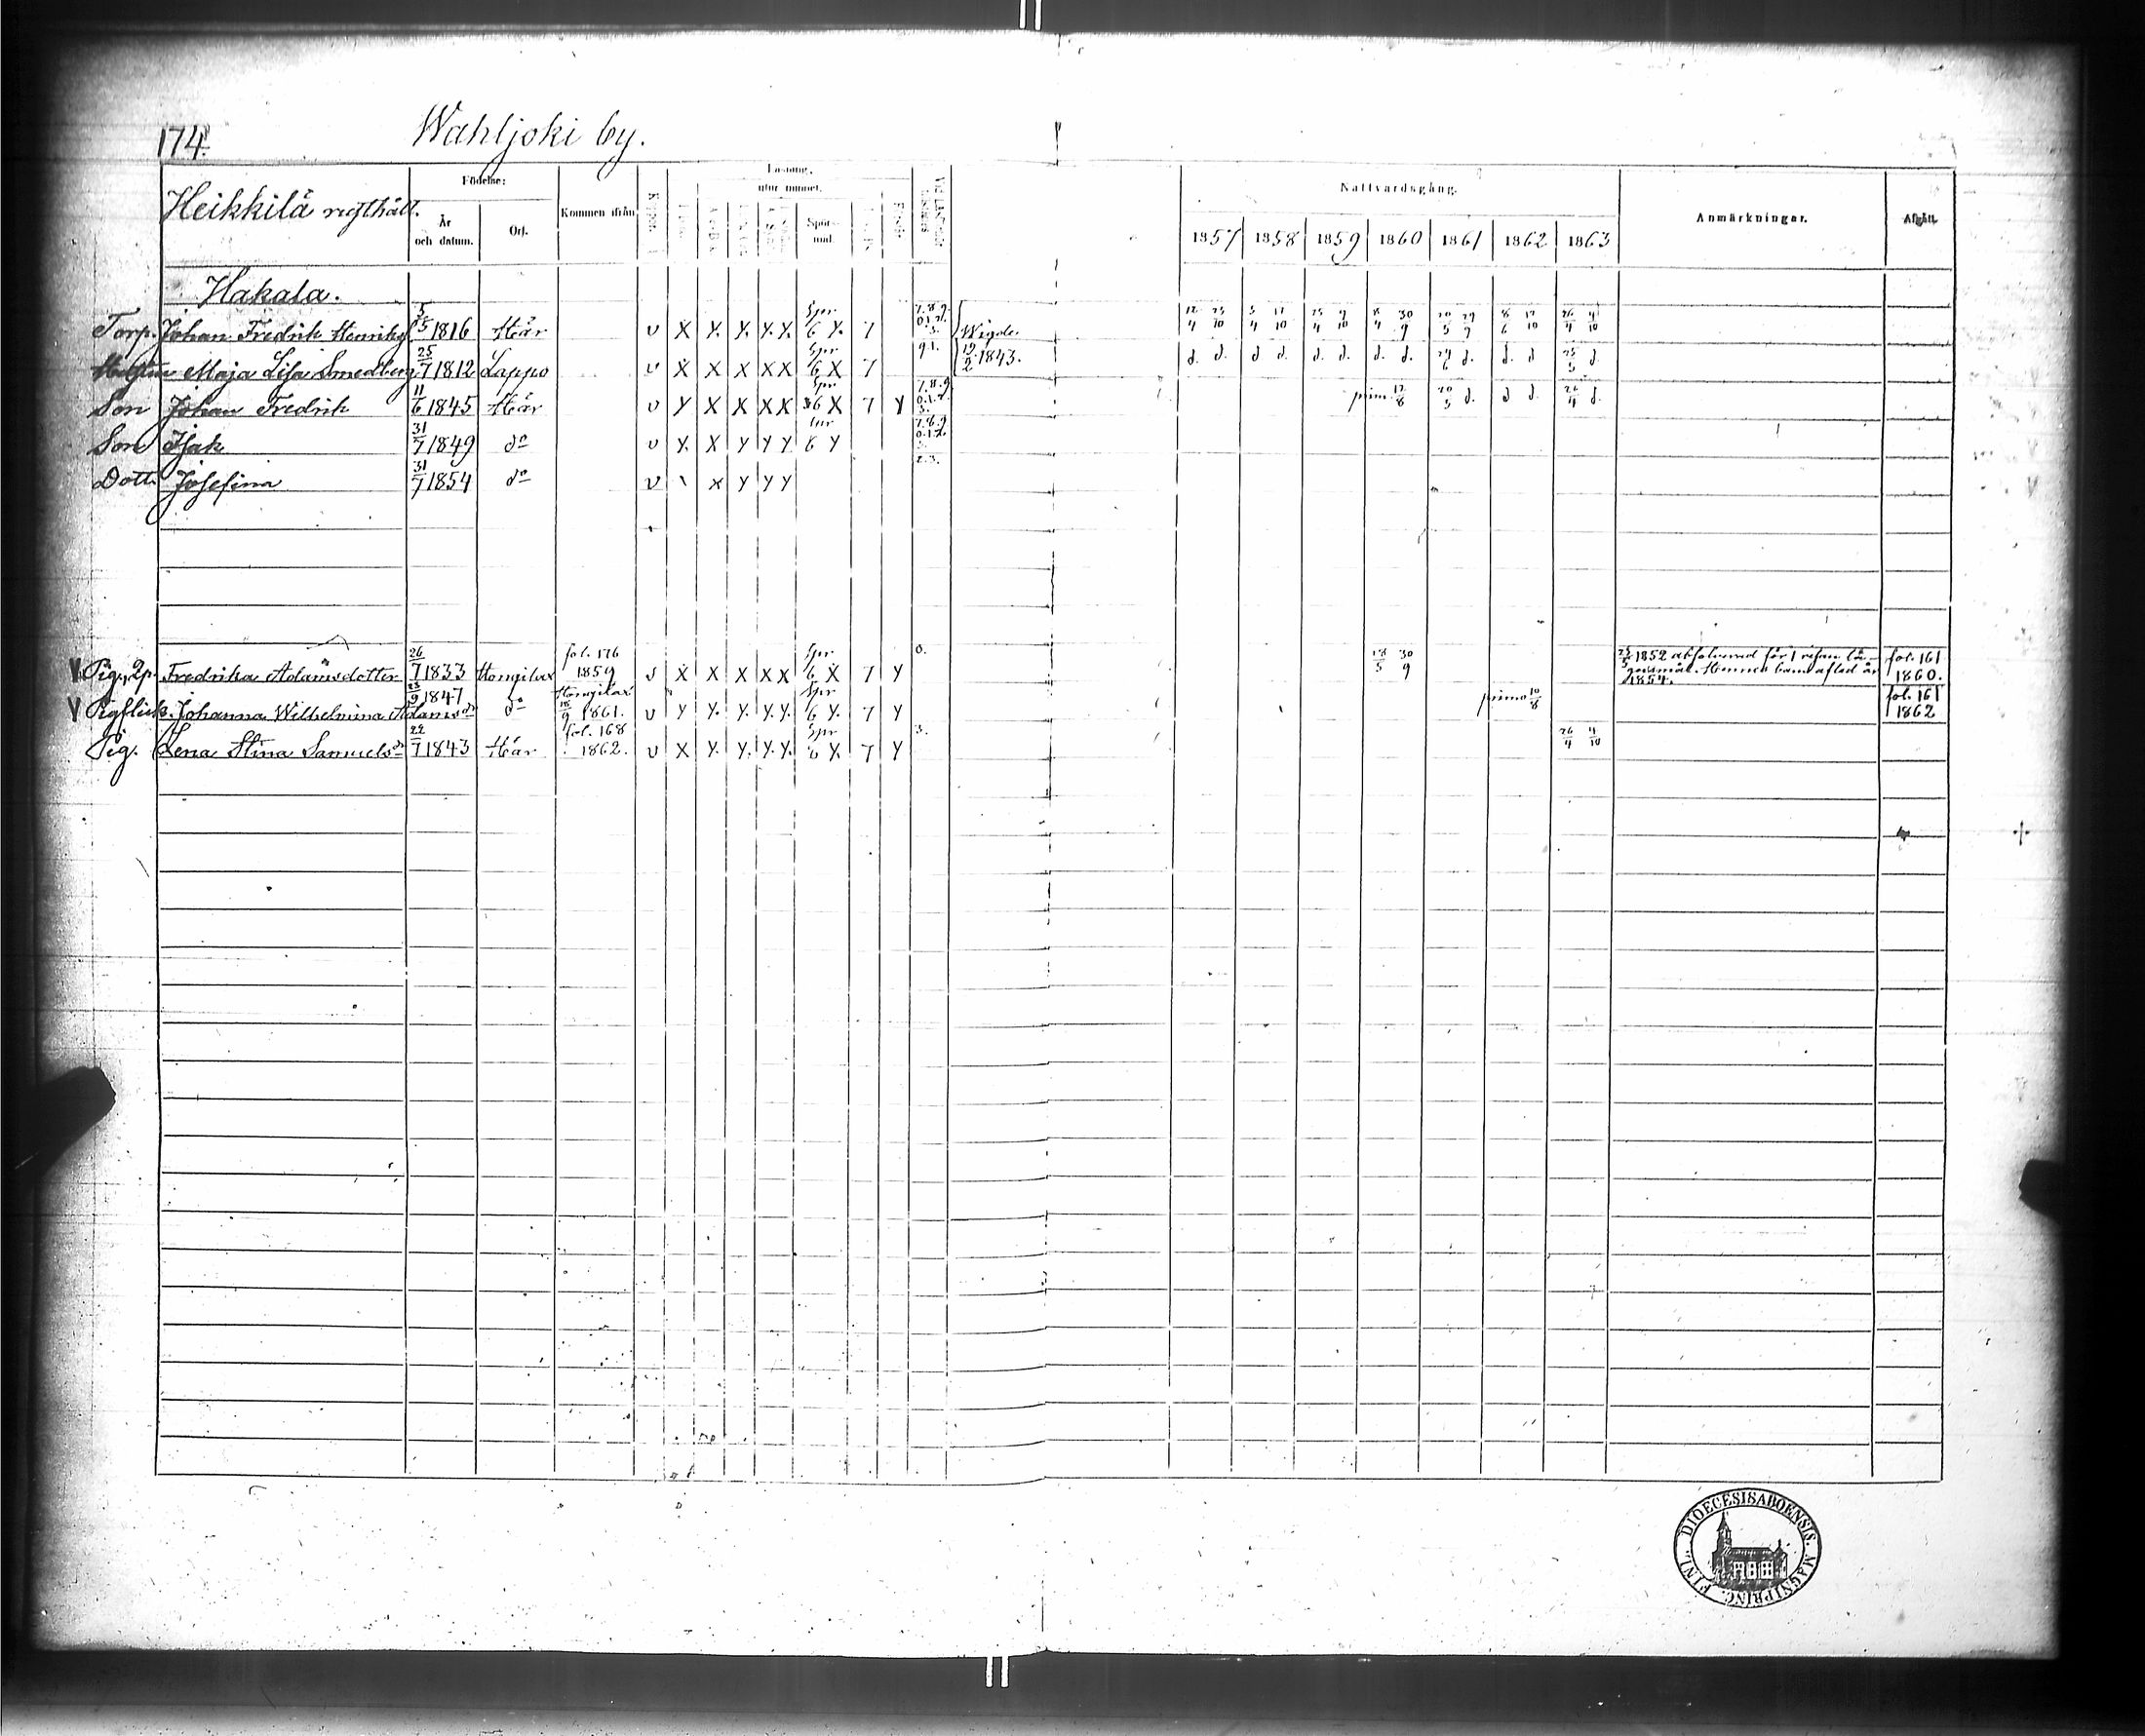 174.
Wahljoki by.
Heikkilä rusthåll.
Födelse:
År och datum.
Ort.
Kommen ifrån
Läsning,
utur minnet.
Spörsmål.
Nattvardsgång.
1857 1858 1859 1860 1861 1862 1863
Anmärkningar.
Afgått.
Hakala.
Torp. Johan Fredrik Henriks 5/5 1816 Här v X Y. Y. Y. Y. Spr 6 Y. 7 7.8.9. Wigde 12/4 23/10 5/4 12/10 25/4 9/10 8/4 30/9 20/5 29/9 8/6 12/10 26/4 4/10
Maja Lisa Smedberg 25/7 1812 Lappo v X X X X X Spr 6 X 7 9.1. 19/2 1843. d. d. d d. d. d. d. d. 29/6 d. d. d 25/5 d.
Son Johan Fredrik 11/6 1845 Här v Y X X X X Spr 6 X 7 Y 7.8.9 prim. 12/8 20/5 d. d d. 26/4 d.
Son Isak 31/7 1849 do v Y. X Y Y Y Spr 6 Y 7.8.9
Dott. Josefina 31/7 1854 do v X Y Y Y 2.3.
V Pig. 2p. Fredrika Adamsdotter 26/7 1833 Hongilax fol. 176 1859 v X X X X X Spr 6 X 7 Y 0. 28/5 30/9 25/5 1852 absolverad för 1 resan lä- fol. 161
gersmål. Hennes barn aflad år 1860.
1854.
V Pigflick. Johanna Wilhelmina Adamsdr 25/9 1847 do Hongilax 15/9 1861. v Y Y. Y. Y. Y. Spr 6 Y. 7 Y primo 10/8 fol. 161 1862
Pig. Lena Stina Samuelsdr 22/7 1843 Här fol. 168 1862. v X Y. Y. Y. Y. Spr 6 Y. 7 Y 3. 26/4 4/10
DIOECESIS ABOENSIS. MAGNI PRINC. FINL.